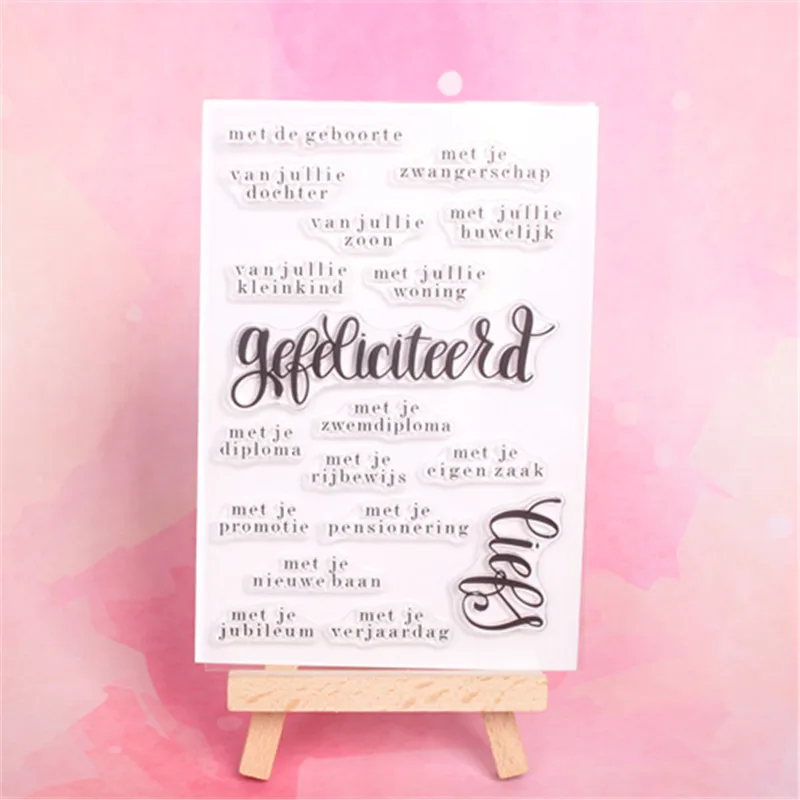 met de geboorte
met je
zwangerschap
van jullie
dochter
van jullie
zoon
met jullie
huwelijk
van jullie
kleinkind
met jullie
woning
gefeliciteerd
met je
zwemdiploma
met je
diploma
met je
rijbewijs
met je
eigen zaak
met je
promotie
met je
pensionering
liefs
met je
nieuwe baan
met je
jubileum
met je
verjaardag